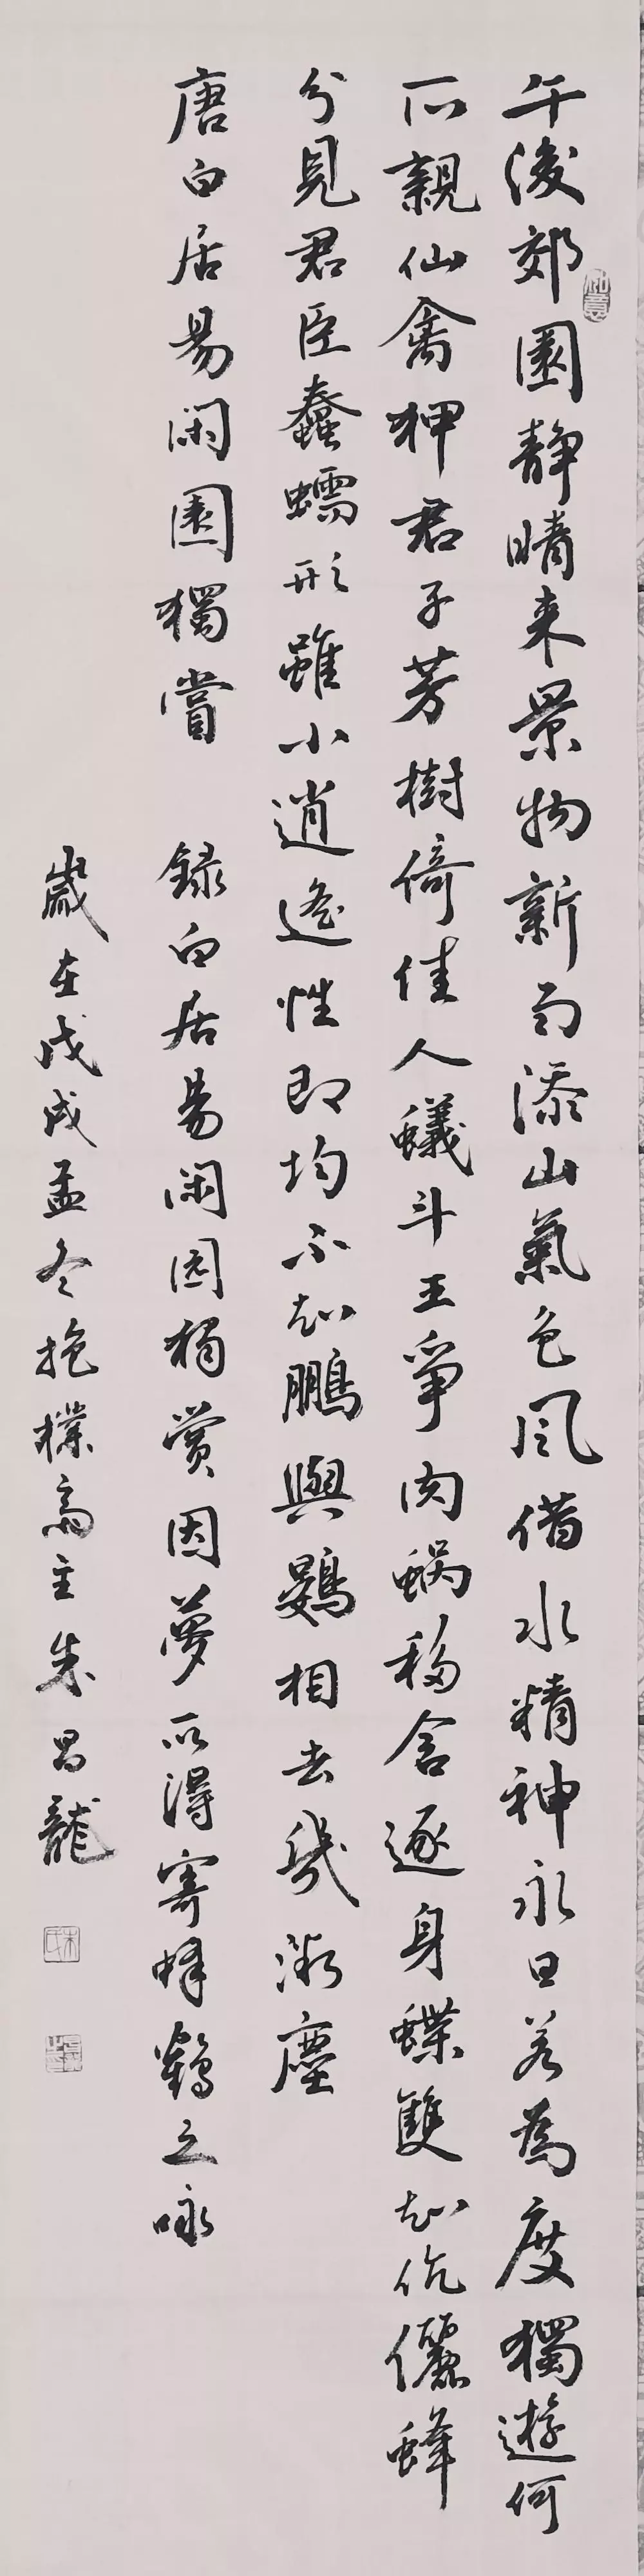 午後郊園静晴来景物新雨添山氣色風借水精神永日若為度獨遊何
所親仙禽狎君子芳樹倚佳人蟻斗王爭肉蝸移舍逐身蝶雙知伉儷蜂
分見君臣蠢蠕形雖小逍遙性即均不知鵬與鷃相去幾微塵
唐白居易閑園獨賞 録白居易閑园独賞因夢所得寄蜂鶴之咏
歲在戊戌孟冬抱樸齋主朱昌龍